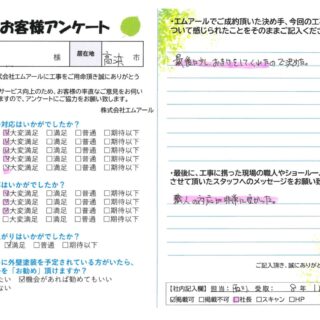 お客様アンケート
様
居在地
高浜 市
株式会社エムアールに工事をご用命頂き誠にありがとう
サービス向上のため、お客様の率直なご意見をお伺い
ますので、アンケートにご協力をお願い致します。
株式会社エムアール
対応はいかがでしたか?
大変満足 □満足 □普通 □期待以下
大変満足 □満足 □普通 □期待以下
大変満足 □満足 □普通 □期待以下
大変満足 □満足 □普通 □期待以下
はいかがでしたか?
大変満足 □満足 □普通 □期待以下
大変満足 □満足 □普通 □期待以下
大変満足 □満足 □普通 □期待以下
がりはいかがでしたか?
満足 □満足 □普通 □期待以下
に外壁塗装を予定されている方がいたら、
を「お勧め」頂けますか?
たい ☑機会があれば勧めてもいい
ない
・エムアールでご成約頂いた決め手、今回の工
ついて感じられたことをそのままご記入くださ
・最後に、工事に携った現場の職人やショールー
させて頂いたスタッフへのメッセージをお願い致
職人の対応が非常に良かった。
ご記入頂き、誠にありが
【社内記入欄】 担当: 受取: 8年 1
☑掲載可 □掲載不可 社長 □スキャン □HP